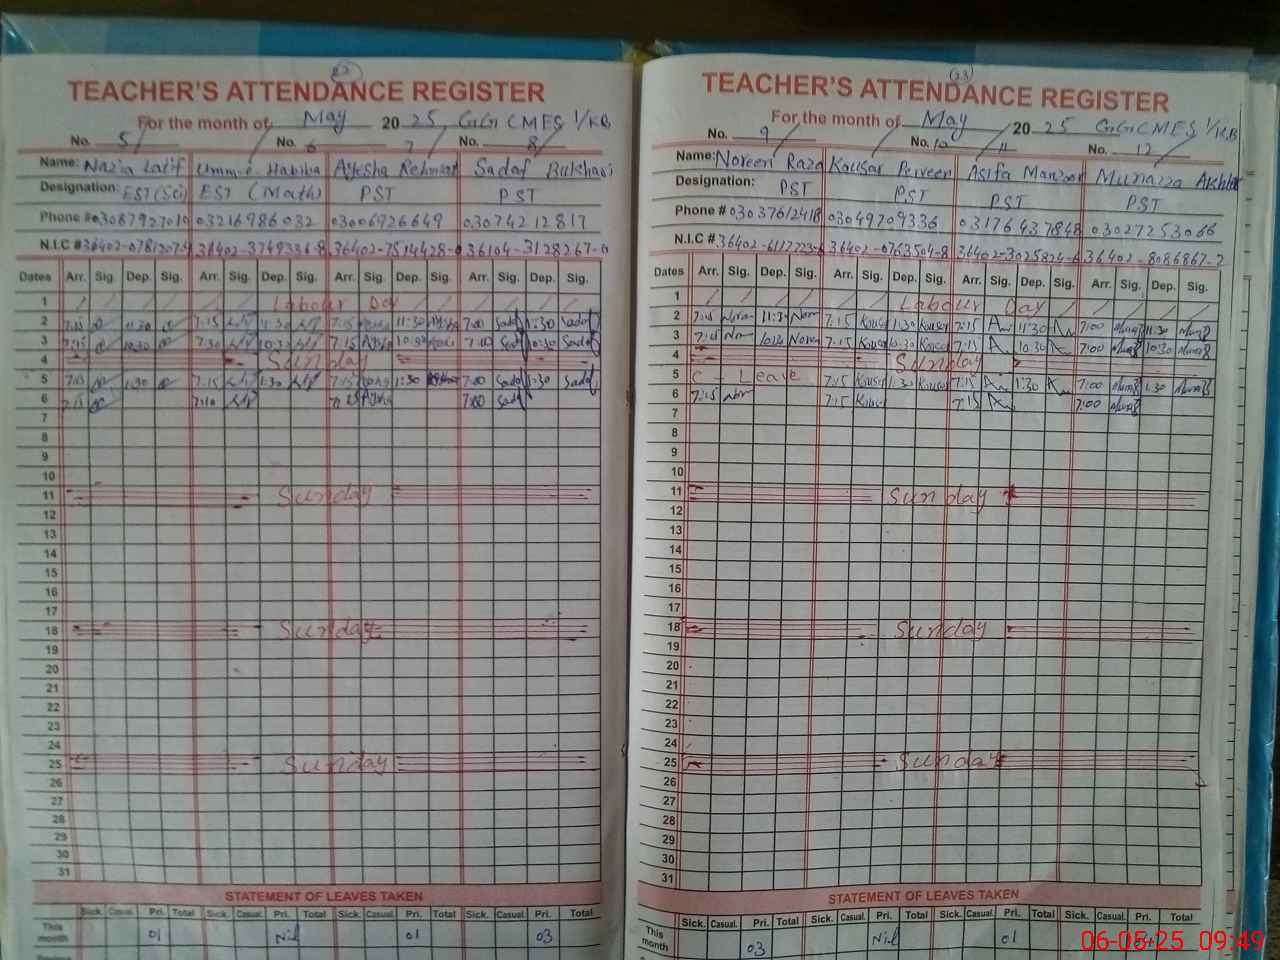 (22)
TEACHER'S ATTENDANCE REGISTER
For the month of May 2025 GGCMES 1/KB
No. 5 No. 6 7 No. 8
Name: Nazia Latif Umm-e-Habiba Ayesha Rehmat Sadaf Bukhari
Designation: EST (Sci) EST (Math) PST PST
Phone # 03087927010 03216986032 03006926649 03074212817
N.I.C # 36402-3749336-8 36104-3128267-0
Dates Arr. Sig. Dep. Sig. Arr. Sig. Dep. Sig. Arr. Sig. Dep. Sig. Arr. Sig. Dep. Sig.
1 Labour Day
2 7:15 11:30 7:15 11:30 7:15 11:30 7:00 Sadaf 11:30 Sadaf
3 7:15 10:30 7:30 10:30 7:15 10:30 7:00 Sadaf 10:30 Sadaf
4 Sunday
5 7:15 1:30 7:15 1:30 7:15 1:30 7:00 Sadaf 1:30 Sadaf
6 7:15 7:10 7:15 7:00 Sadaf
7
8
9
10
11 Sunday
12
13
14
15
16
17
18 Sunday
19
20
21
22
23
24
25 Sunday
26
27
28
29
30
31
STATEMENT OF LEAVES TAKEN
Sick. Casual. Pri. Total Sick. Casual. Pri. Total Sick. Casual. Pri. Total Sick. Casual. Pri. Total
This month 01 Nil 01 03
(23)
TEACHER'S ATTENDANCE REGISTER
For the month of May 2025 GGCMES 1/KB
No. 9 No. 10 11 No. 12
Name: Noreen Raza Kousar Perveen Asifa Manzoor Munazza Akhtar
Designation: PST PST PST PST
Phone # 03037612418 03049709336 03176437848 03027253066
N.I.C # 36402-0763504-8 36402-8086867-2
Dates Arr. Sig. Dep. Sig. Arr. Sig. Dep. Sig. Arr. Sig. Dep. Sig. Arr. Sig. Dep. Sig.
1 Labour Day
2 7:15 11:30 7:15 Kousar 11:30 Kousar 7:15 11:30 7:00 11:30
3 7:15 10:30 7:15 Kousar 10:30 Kousar 7:15 10:30 7:00 10:30
4 Sunday
5 C - Leave 7:15 Kousar 1:30 Kousar 7:15 1:30 7:00 1:30
6 7:15 7:15 Kousar 7:15 7:00
7
8
9
10
11 Sunday
12
13
14
15
16
17
18 Sunday
19
20
21
22
23
24
25 Sunday
26
27
28
29
30
31
STATEMENT OF LEAVES TAKEN
Sick. Casual. Pri. Total Sick. Casual. Pri. Total Sick. Casual. Pri. Total Sick. Casual. Pri. Total
This month 03 Nil 01
06-05-25 09:49